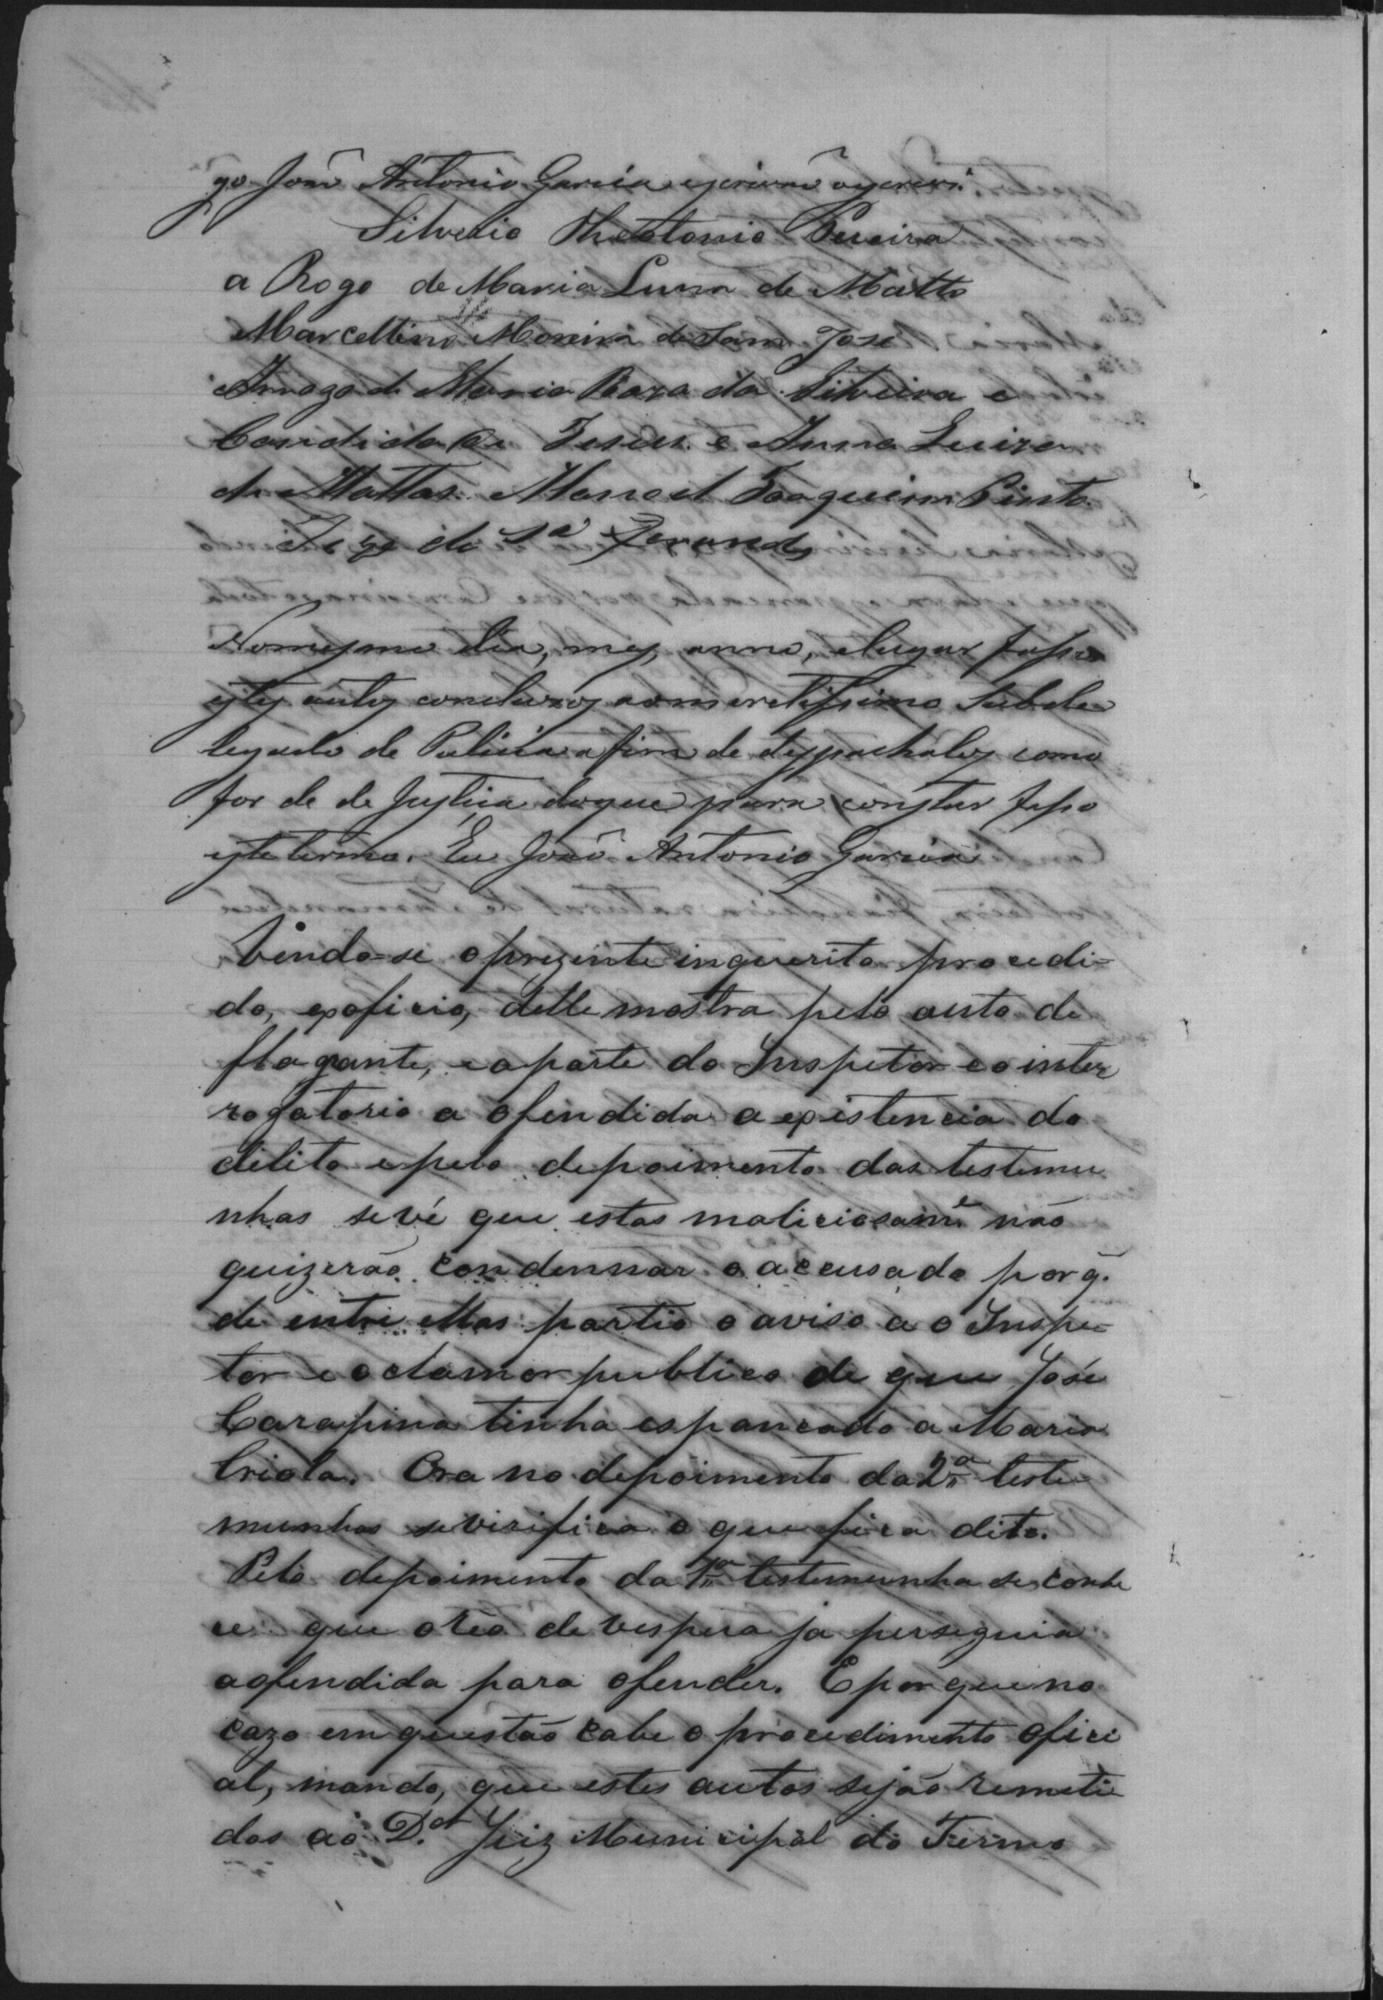 go João Antonio Garcia escrivão escrevi.
Silverio Theotonio Pereira
a Rogo de Maria Luisa de Matto
Marcellino Moreira de Sam José
Arrogo de Maria Roza da Silveira e
Candida de Jesus e Anna Luiza
de Mattos. Manoel Joaquim Pinto
José de Sá
No mesmo dia, mes, anno, elugar faço
estes autos concluzos ao meretissimo Subde
legado de Policia afim de despachalos como
for de de Justica doque para constar faço
este termo. Eu João Antonio Garcia
Vendo-se oprezente inquerito procedi-
do, exoficio, delle mostra pelo auto de
flagrante, eaparte do Inspetor eo inter
rogatorio a ofendida a existencia do
delito epelo depoimento das testemu
nhas sevê que estas maliciosamᵉ não
quizerão condennar o accusado porq̃.
de entre ellas partio o aviso a o Inspe-
tor e oclamor publico de que José
Carapina tinha espancado a Maria
Criola. Ora no depoimento da 2ª teste
munha severifica o que fica dito.
Pelo depoimento da 1ª testemunha se conhe
ce que oreo de vespera já perseguia
aofendida para ofender. Eporque no
cazo em questão cabe o procedimento ofici
al, mando, que estes autos sejão remeti
dos ao D.ᵒʳ Juiz Municipal do Termo